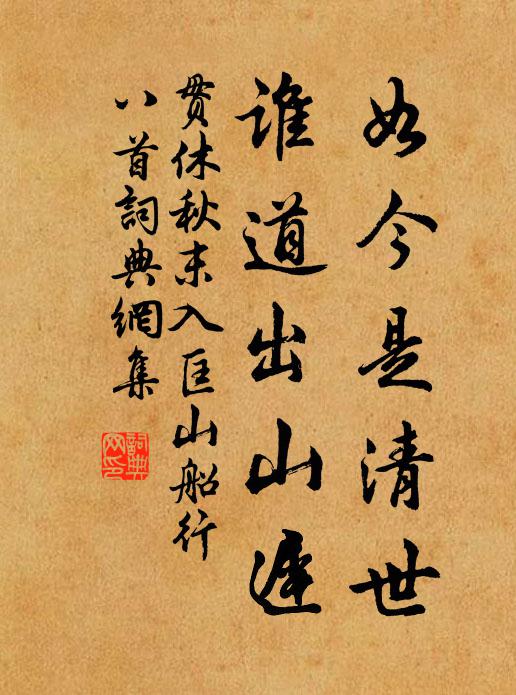 如今是清世
谁道出山遲
贯休秋末入匡山船行
八首詞典網集
詞典網印